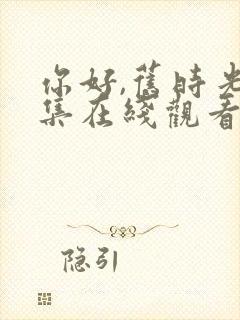 你好,舊時光
集在綫觀看
隐引